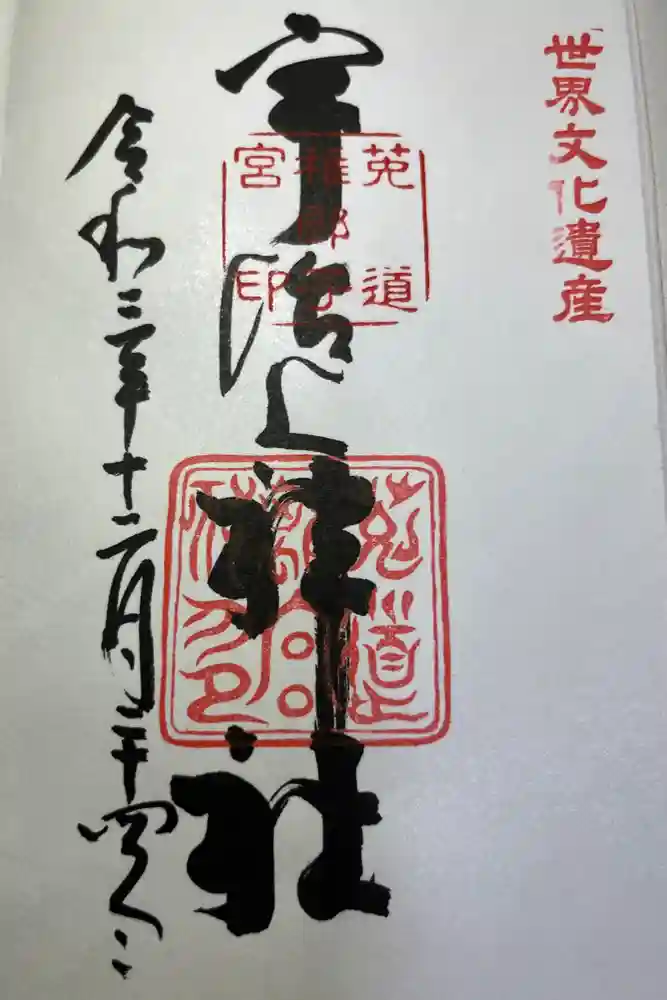 世界文化遺産
宇治上神社
菟道
稚郎子
宮印
令和三年十二月二十四日